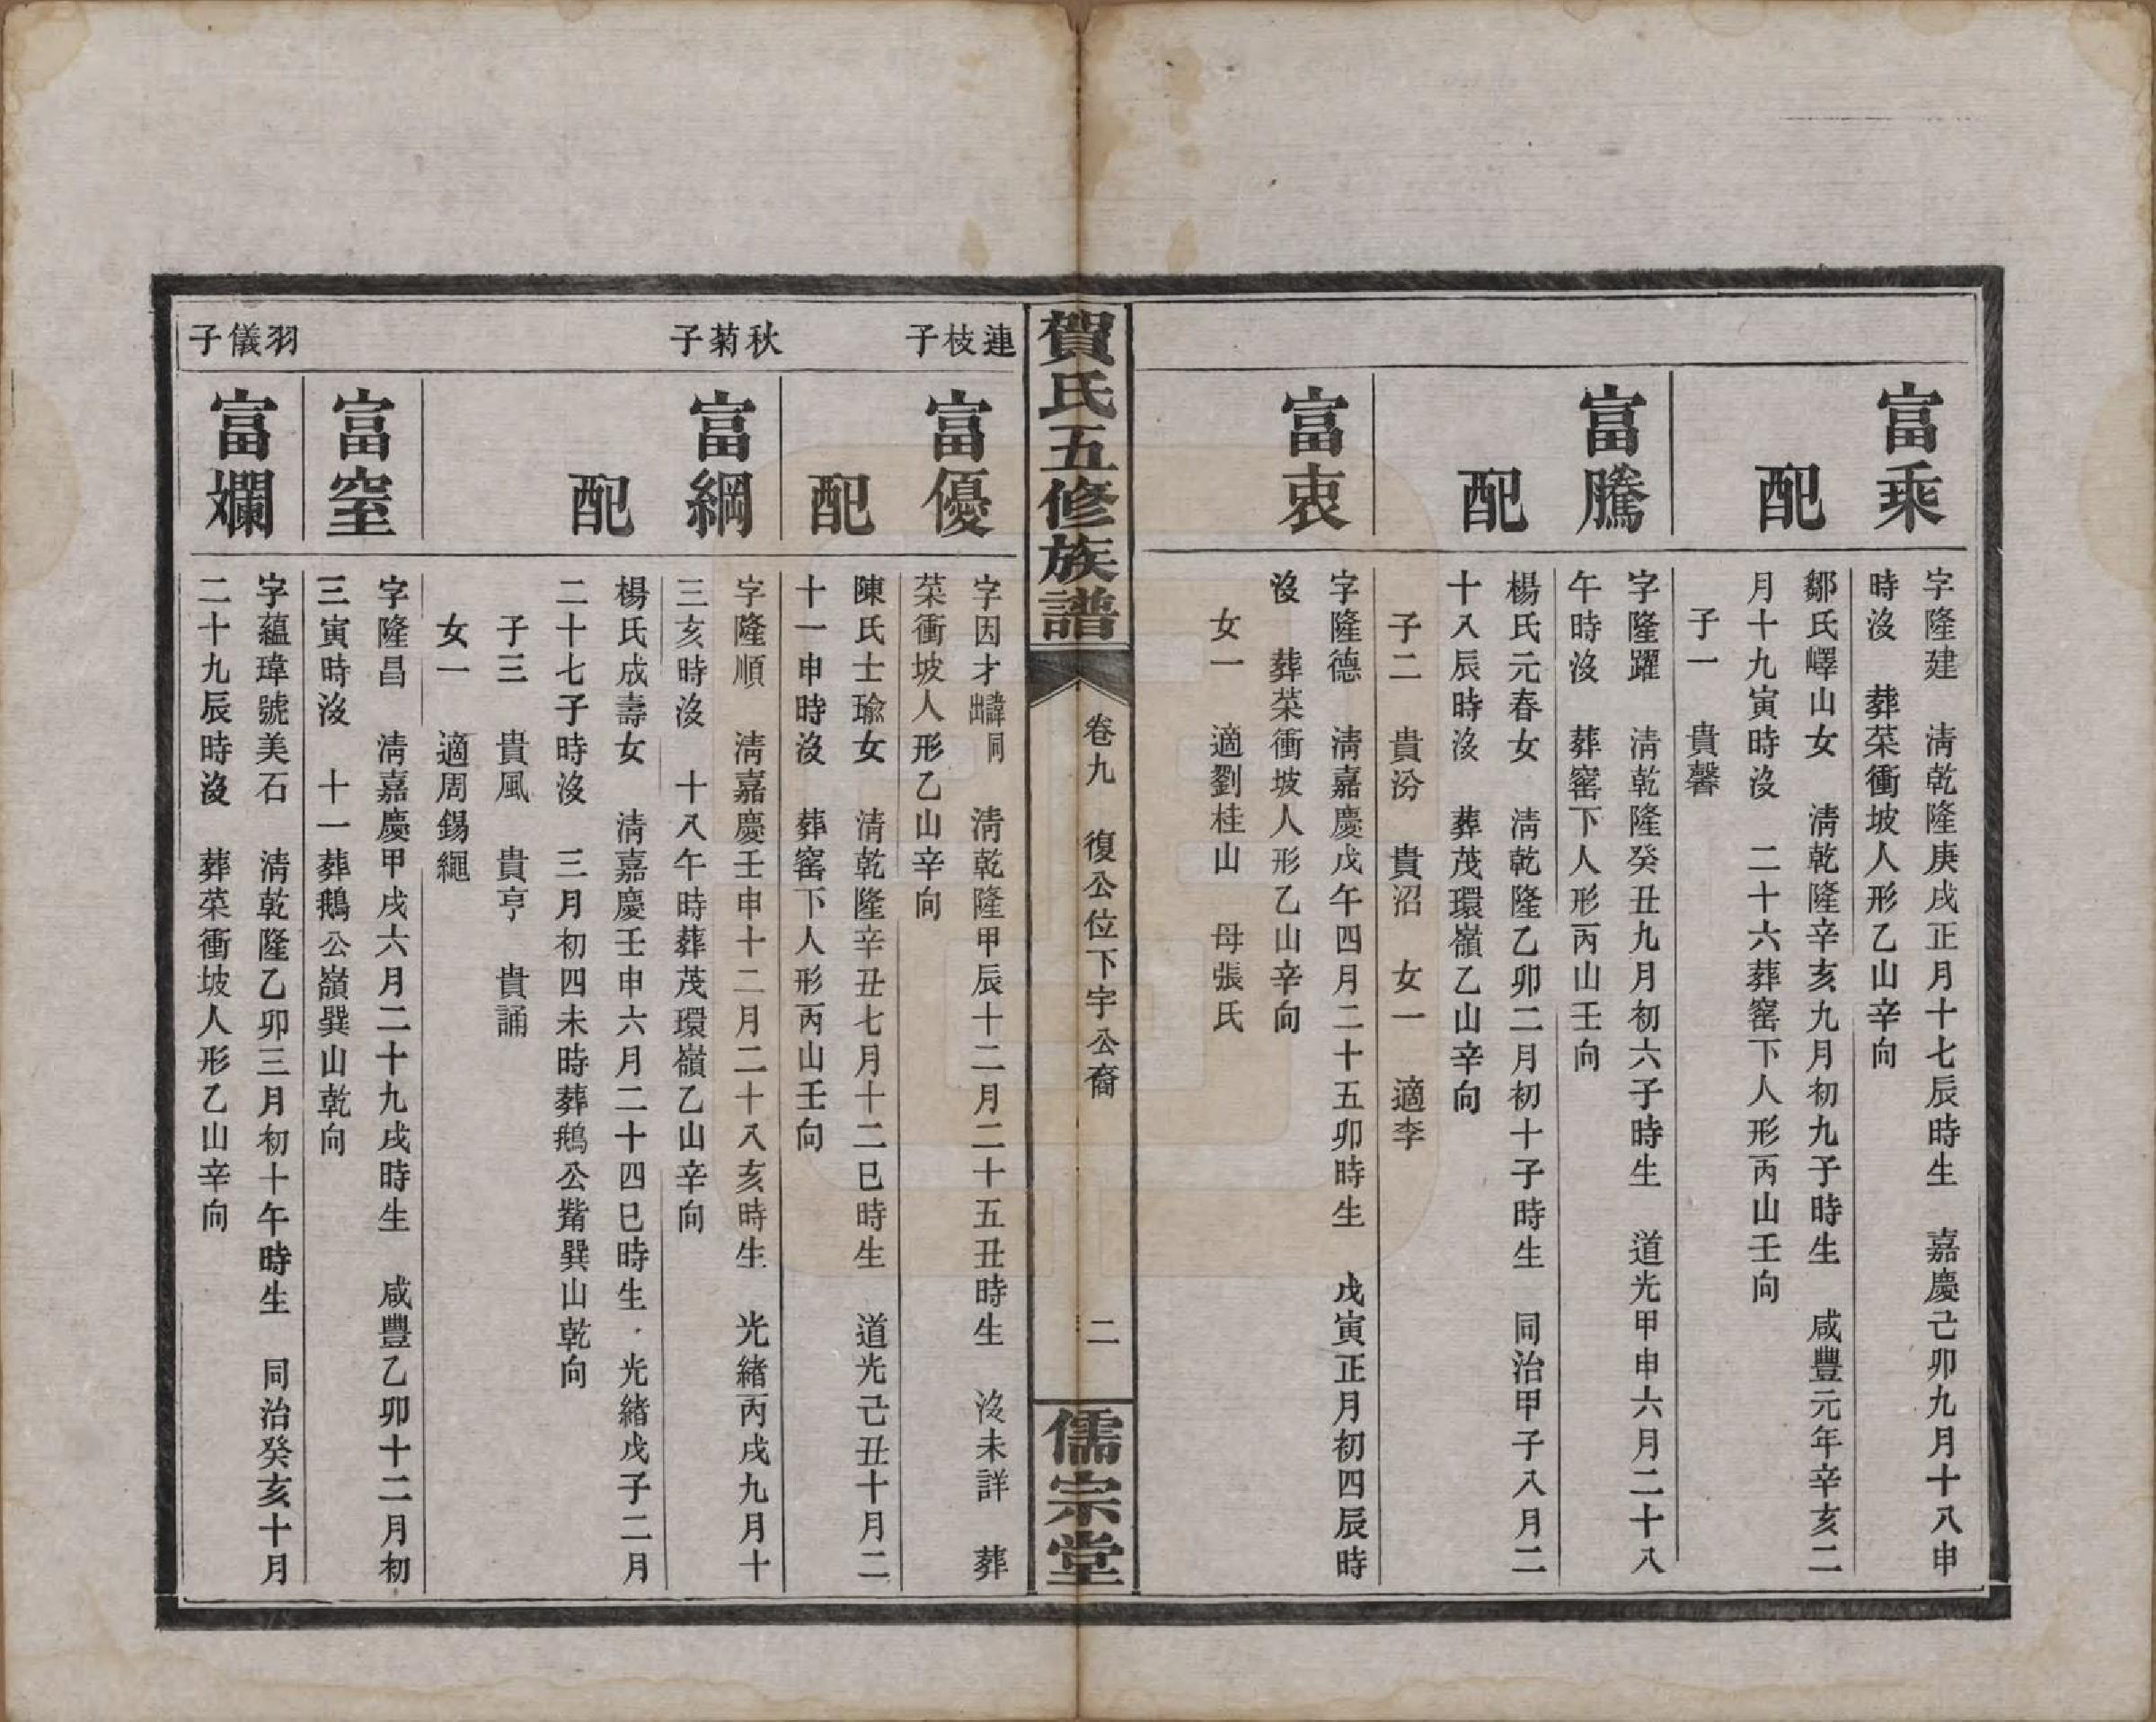 富乘
字隆建　淸乾隆庚戌正月十七辰時生　嘉慶己卯九月十八申
時沒　葬菜衝坡人形乙山辛向
配
鄒氏嶧山女　淸乾隆辛亥九月初九子時生　咸豐元年辛亥二
月十九寅時沒　二十六葬窰下人形丙山壬向
子一　貴馨
富騰
字隆躍　淸乾隆癸丑九月初六子時生　道光甲申六月二十八
午時沒　葬窰下人形丙山壬向
配
楊氏元春女　淸乾隆乙卯二月初十子時生　同治甲子八月二
十八辰時沒　葬茂環嶺乙山辛向
子二　貴汾　貴沼　女一　適李
富衷
字隆德　淸嘉慶戊午四月二十五卯時生　戊寅正月初四辰時
沒　葬菜衝坡人形乙山辛向
女一　適劉桂山　母張氏
賀氏五修族譜
卷九　復公位下宇公裔
二
儒宗堂
連枝子
富優
字因才出諱同　淸乾隆甲辰十二月二十五丑時生　沒未詳　葬
菜衝坡人形乙山辛向
配
陳氏士瑜女　淸乾隆辛丑七月十二巳時生　道光己丑十月二
十一申時沒　葬窰下人形丙山壬向
秋菊子
富綱
字隆順　淸嘉慶壬申十二月二十八亥時生　光緒丙戌九月十
三亥時沒　十八午時葬茂環嶺乙山辛向
配
楊氏成壽女　淸嘉慶壬申六月二十四巳時生　光緒戊子二月
二十七子時沒　三月初四未時葬鵝公觜巽山乾向
子三　貴風　貴亨　貴誦
女一　適周錫繩
富窒
字隆昌　淸嘉慶甲戌六月二十九戌時生　咸豐乙卯十二月初
三寅時沒　十一葬鵝公嶺巽山乾向
羽儀子
富斕
字蘊瑋號美石　淸乾隆乙卯三月初十午時生　同治癸亥十月
二十九辰時沒　葬菜衝坡人形乙山辛向